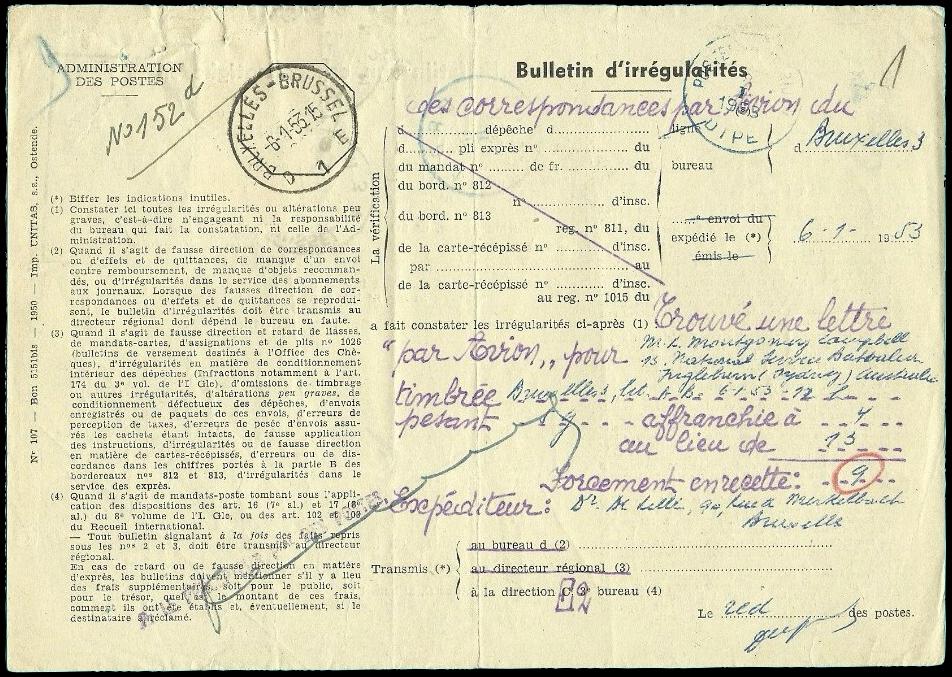 ADMINISTRATION
DES POSTES
No 152 d
BRUXELLES-BRUSSEL
6-1-53 15
E 1 G
Bulletin d'irrégularités
1
des correspondances par avion du
d dépêche d ligne
d pli exprès n° du
du mandat n° de fr. du bureau
d Bruxelles 3
du bord. n° 812
n° d'insc.
du bord. n° 813
reg. n° 811, du
de la carte-récépissé n° d'insc.
par au
de la carte-récépissé n° d'insc.
au reg. n° 1015 du
La vérification
envoi du
expédié le (*)
émis le
6-1- 1953
a fait constater les irrégularités ci-après (1) Trouvé une lettre
"par Avion" pour M. L. Montgomery Campbell
13 National Service Battalion
Ingleburn (Sydney) Australie
timbrée Bruxelles, 6-1-53
pesant g affranchie à
au lieu de 13
Forcement en recette: 9
Expéditeur: Dr. 90, Rue Merkelbach
Bruxelles
Transmis (*)
au bureau d (2)
au directeur régional (3)
à la direction C 3e bureau (4)
12
Le réd des postes.
(*) Biffer les indications inutiles.
(1) Constater ici toutes les irrégularités ou altérations peu
graves, c'est-à-dire n'engageant ni la responsabilité
du bureau qui fait la constatation, ni celle de l'Ad-
ministration.
(2) Quand il s'agit de fausse direction de correspondances
ou d'effets et de quittances, de manque d'un envoi
contre remboursement, de manque d'objets recomman-
dés, ou d'irrégularités dans le service des abonnements
aux journaux. Lorsque des fausses directions de cor-
respondances ou d'effets et de quittances se reprodui-
sent, le bulletin d'irrégularités doit être transmis au
directeur régional dont dépend le bureau en faute.
(3) Quand il s'agit de fausse direction et retard de liasses,
de mandats-carte, d'assignations et de plis n° 1026
(bulletins de versement destinés à l'Office des Chè-
ques), d'irrégularités en matière de conditionnement
intérieur des dépêches (Infractions notamment à l'art.
174 du 3e vol. de l'I Gle), d'omissions de timbrage
ou autres irrégularités, d'altérations peu graves, de con-
ditionnement défectueux des dépêches, d'envois
enregistrés ou de paquets de ces envois, d'erreurs de
perception de taxes, d'erreurs de pesée d'envois assu-
rés les cachets étant intacts, de fausse application
des instructions, d'irrégularités ou de fausse direction
en matière de cartes-récépissés, d'erreurs ou de dis-
cordance dans les chiffres portés à la partie B des
bordereaux nos 812 et 813, d'irrégularités dans le
service des exprès.
(4) Quand il s'agit de mandats-poste tombant sous l'appli-
cation des dispositions des art. 16 (7e al.) et 17 (8e
al.) du 8e volume de l'I. Gle, ou des art. 102 et 103
du Recueil international.
— Tout bulletin signalant à la fois des faits repris
sous les nos 2 et 3, doit être transmis au directeur
régional.
En cas de retard ou de fausse direction en matière
d'exprès, les bulletins doivent mentionner s'il y a lieu
des frais supplémentaires, soit pour le public, soit
pour le trésor, quel est le montant de ces frais,
comment ils ont été établis et, éventuellement, si le
destinataire a réclamé.
N° 107 — Bon 515lbis — 1950 — Imp. UNITAS, s.a., Ostende.